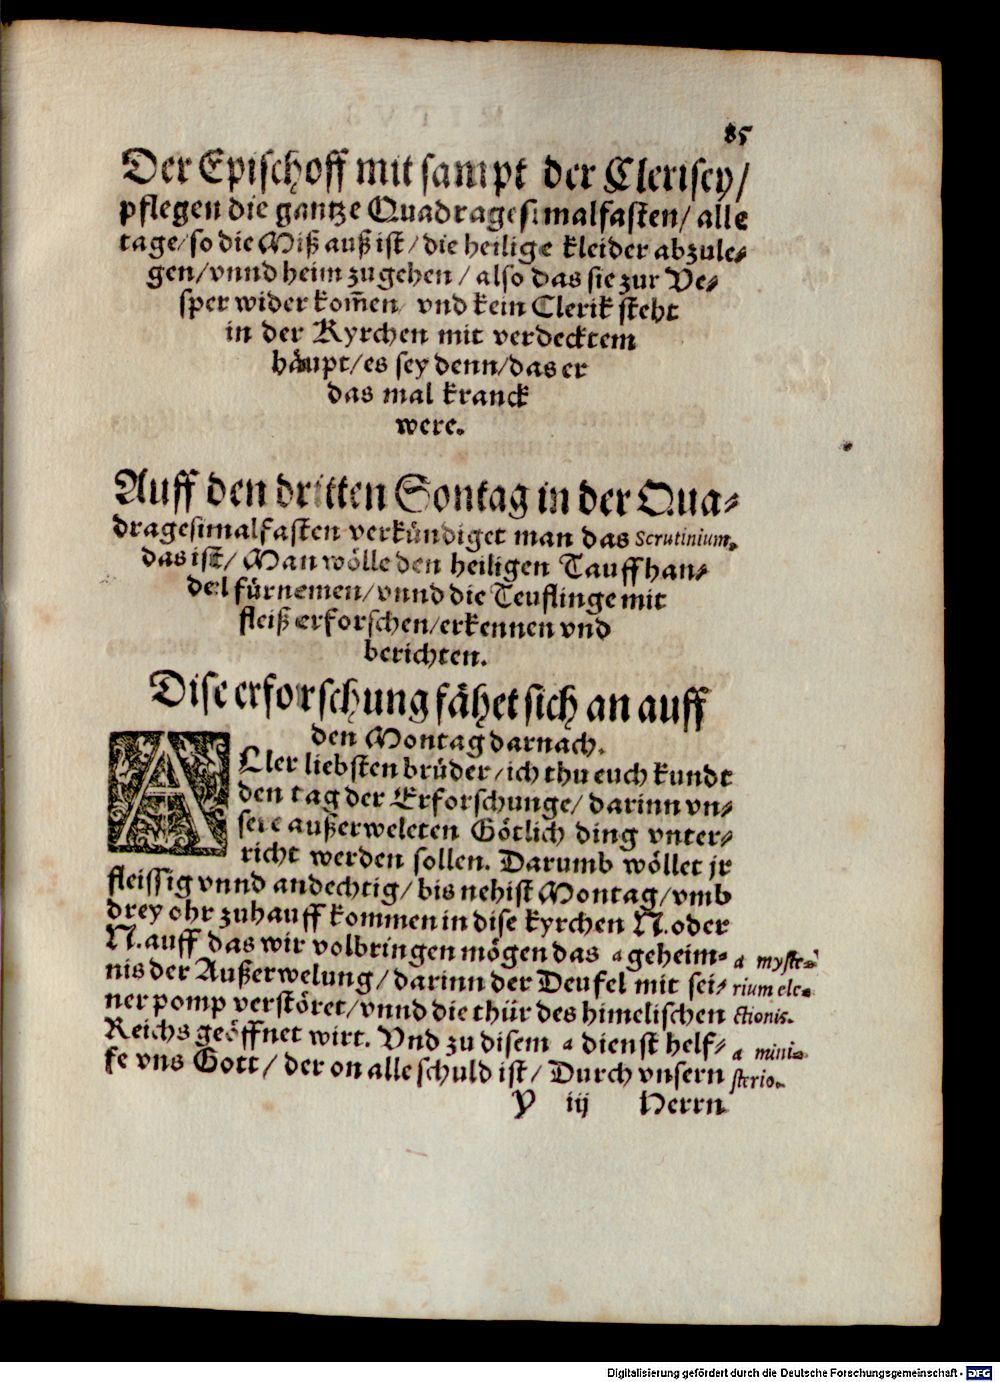 85
Der Epischoff mit sampt der Clerisey/
pflegen die gantze Quadragesimalfasten/ alle
tage/ so die Miß auß ist/ die heilige kleider abzule-
gen/ vnnd heim zu gehen/ also das sie zur Ve-
sper wider kom̃en/ vnd kein Clerik steht
in der Kyrchen mit verdecktem
häupt/ es sey denn/ das er
das mal kranck
were.
Auff den dritten Sontag in der Qua-
dragesimalfasten verkündiget man das Scrutinium.
das ist/ Man wölle den heiligen Tauffhan-
del fürnemen/ vnnd die Teuflinge mit
fleiß erforschen/ erkennen vnd
berichten.
Dise erforschung fähet sich an auff
den Montag darnach.
ALler liebsten brüder/ ich thu euch kundt
den tag der Erforschunge/ darinn vn-
sere außerweleten Götlich ding vnter-
richt werden sollen. Darumb wöllet jr
fleissig vnnd andechtig/ bis nehist Montag/ vmb
drey ohr zuhauff kommen in dise kyrchen N. oder
N. auff das wir volbringen mögen das a geheim-
nis der Außerwelung/ darinn der Deufel mit sei-
ner pomp verstöret/ vnnd die thür des himelischen
Reichs geöffnet wirt. Vnd zu disem a dienst helf-
fe vns Gott/ der on alle schuld ist/ Durch vnsern
a myste-
rium ele-
ctionis.
a mini-
sterio.
Y iij Herrn
Digitalisierung gefördert durch die Deutsche Forschungsgemeinschaft - DFG